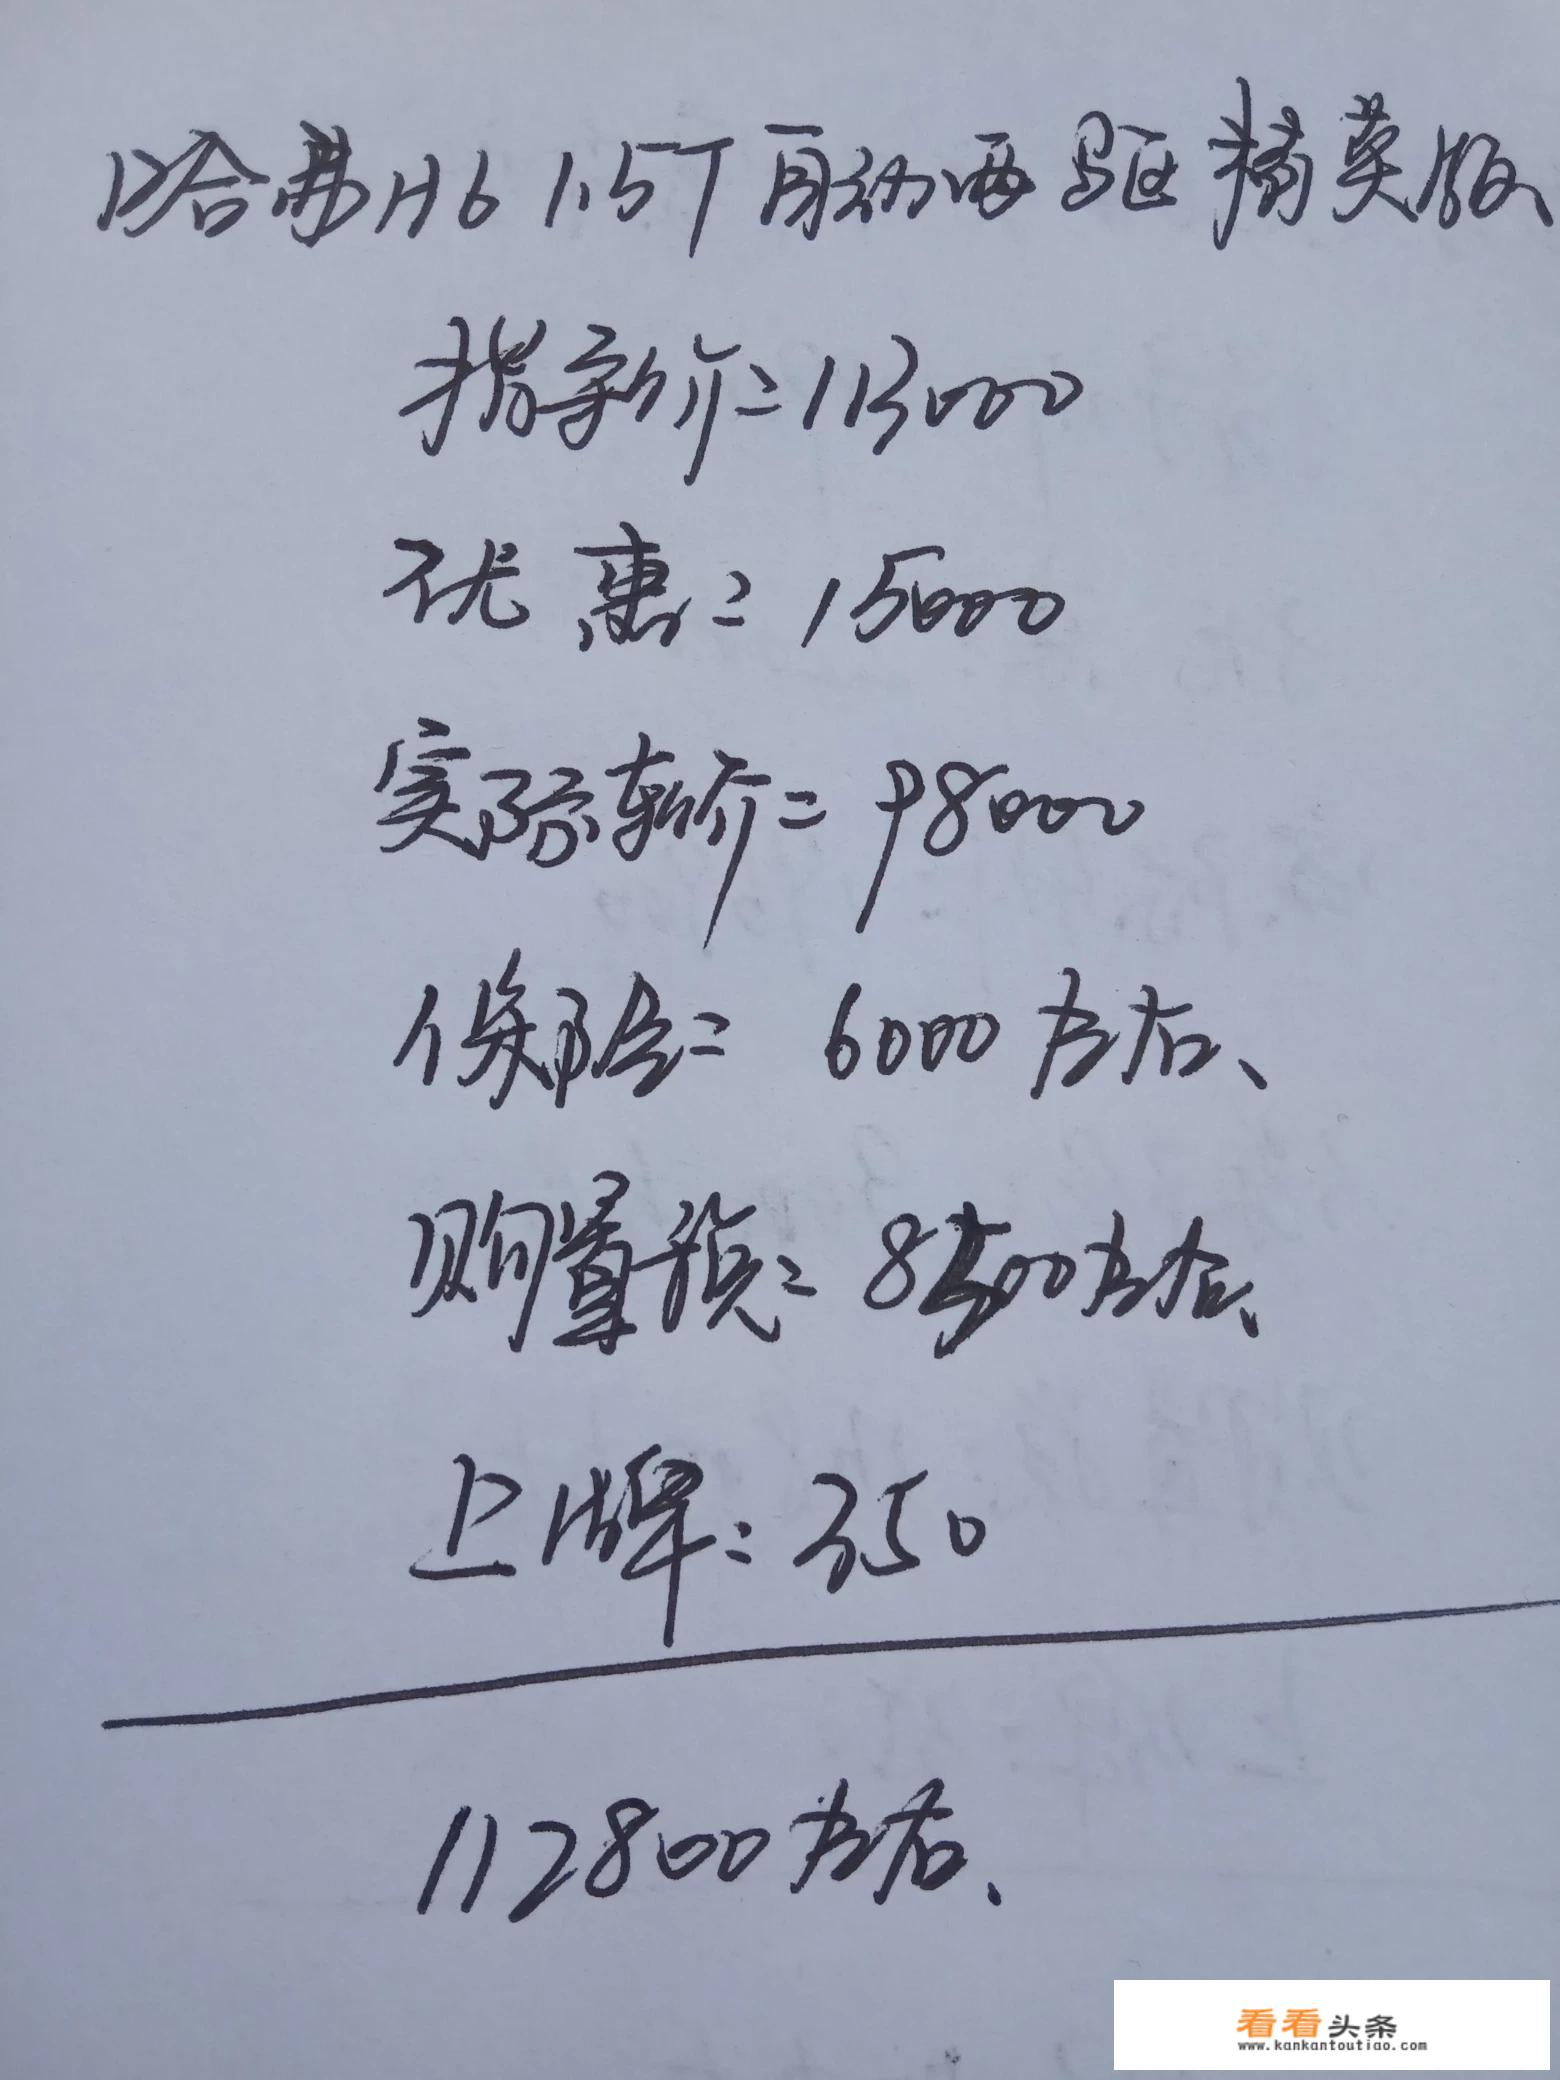 哈弗H6 1.5T自动两驱精英版
指导价=113000
优惠=15000
实际车价=98000
保险=6000左右、
购置税=8500左右、
上牌=350
112800左右、
看看头条
www.kankantoutiao.com